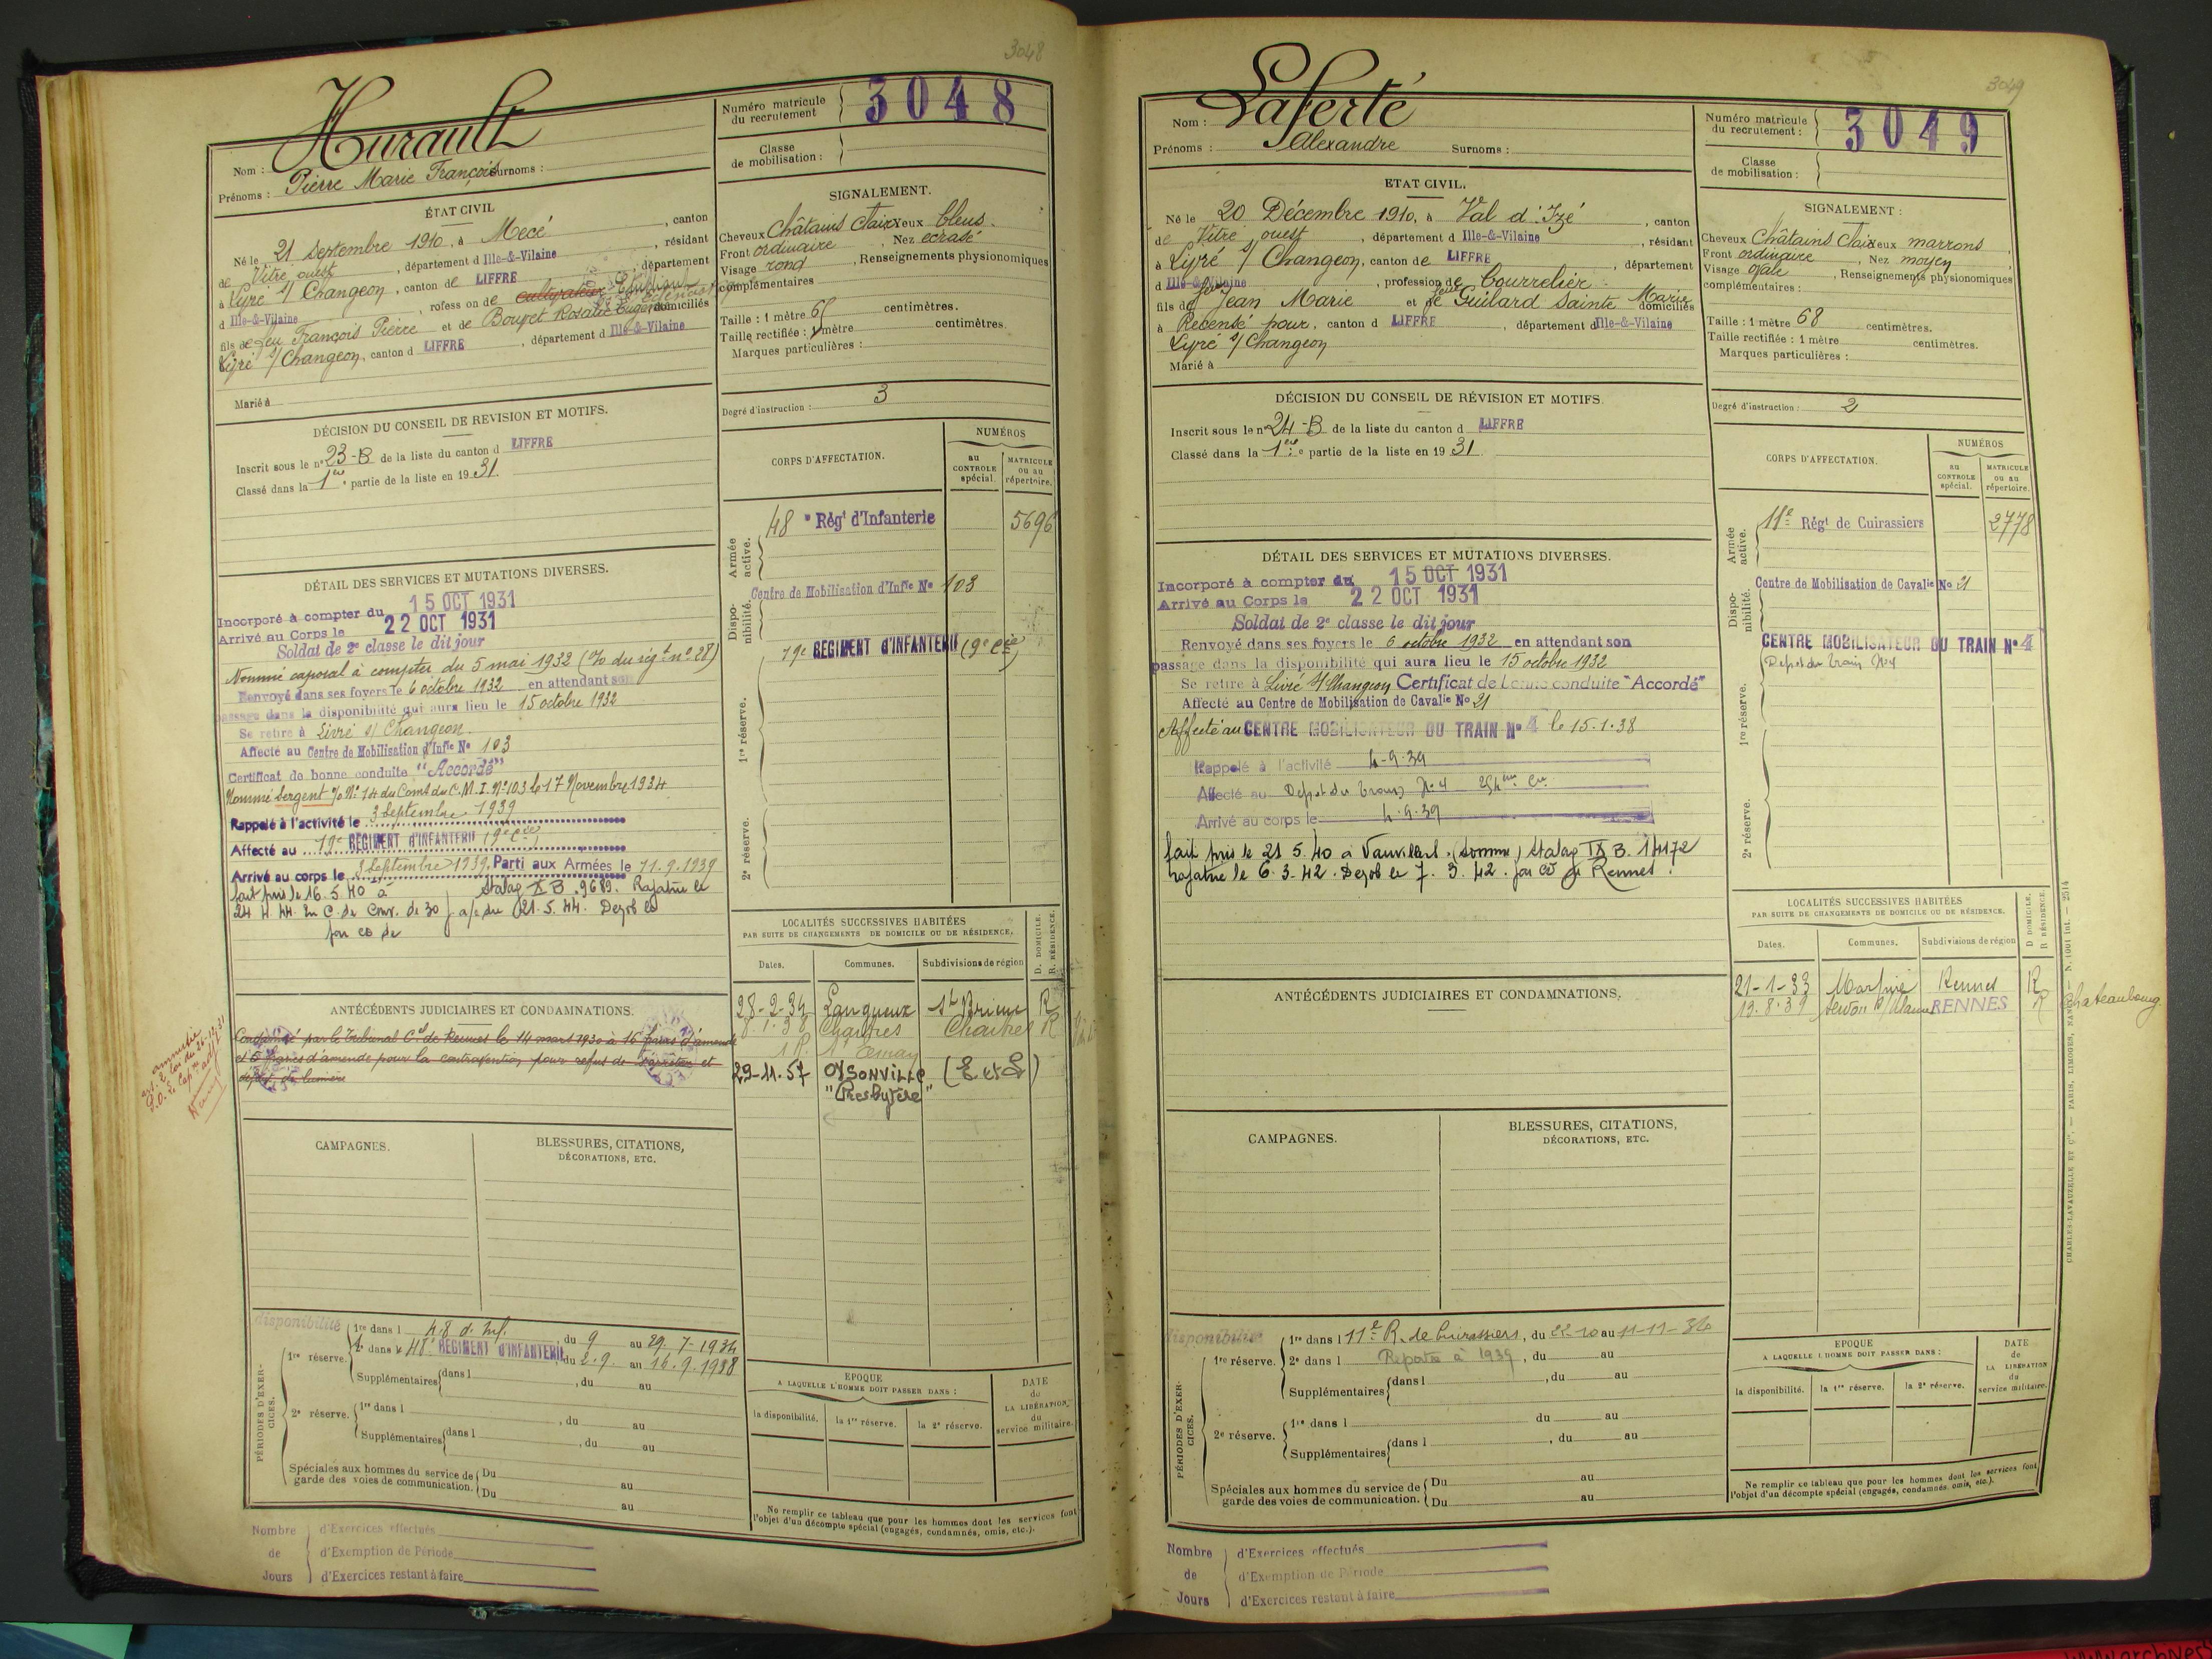 3048
Nom : Hurault
Prénoms : Pierre Marie François Surnoms :
Numéro matricule du recrutement 3048
Classe de mobilisation :
ÉTAT CIVIL
Né le 21 Septembre 1910, à Mecé, canton
de Vitré ouest, département d Ille-&-Vilaine, résidant
à Livré s/ Changeon, canton de LIFFRE, département
d Ille-&-Vilaine, profession de cultivateur
fils de feu François Pierre et de Boupet Rosalie Eugénie domiciliés
Livré s/ Changeon, canton d LIFFRE, département d Ille-&-Vilaine
Marié à
SIGNALEMENT.
Cheveux Châtains clairs Yeux bleus
Front ordinaire, Nez écrasé
Visage rond, Renseignements physionomiques
complémentaires :
Taille : 1 mètre 65 centimètres.
Taille rectifiée : 1 mètre centimètres.
Marques particulières :
Degré d'instruction : 3
DÉCISION DU CONSEIL DE REVISION ET MOTIFS.
Inscrit sous le n° 23-B de la liste du canton d LIFFRE
Classé dans la 1ère partie de la liste en 1931
CORPS D'AFFECTATION.
NUMÉROS
au CONTROLE spécial.
MATRICULE ou au répertoire.
Armée active.
48e Régt d'Infanterie 5696
Dispo-nibilité.
Centre de Mobilisation d'Infie No 103
1re réserve.
79e REGIMENT d'INFANTERIE (9e Cie)
2e réserve.
DÉTAIL DES SERVICES ET MUTATIONS DIVERSES.
Incorporé à compter du 15 OCT 1931
Arrivé au Corps le 22 OCT 1931
Soldat de 2e classe le dit jour
Nommé caporal à compter du 5 mai 1932 (% du régt n° 28)
Renvoyé dans ses foyers le 6 octobre 1932 en attendant son
passage dans la disponibilité qui aura lieu le 15 octobre 1932
Se retire à Livré s/ Changeon.
Affecté au Centre de Mobilisation d'Infie No 103
Certificat de bonne conduite "Accordé"
Nommé Sergent % N° 14 du Comt du C.M.I. N° 103 le 17 Novembre 1934
Rappelé à l'activité le 3 Septembre 1939
Affecté au 79e REGIMENT d'INFANTERIE (9e Cie)
Arrivé au corps le 3 Septembre 1939. Parti aux Armées le 11.9.1939
fait pris le 16.5.40 à Stalag X B. 9689. Rapatrié le
24.4.44. En C. de Conv. de 30 j. a/c du 21.5.44. Demob le
par CD de
LOCALITÉS SUCCESSIVES HABITÉES
PAR SUITE DE CHANGEMENTS DE DOMICILE OU DE RÉSIDENCE.
D. DOMICILE. R. RÉSIDENCE.
Dates. Communes. Subdivisions de région
28-2-34 Langueux St Brieuc R
8.1.38 Chartres Chartres R
29-11-57 OYSONVILLE (E et L)
"Presbytère"
ANTÉCÉDENTS JUDICIAIRES ET CONDAMNATIONS.
Condamné par le Tribunal Cel de Rennes le 14 mars 1930 à 16 francs d'amende
et 5 francs d'amende pour la contravention pour refus de s'arrêter et
défaut de lumière
CAMPAGNES.
BLESSURES, CITATIONS, DÉCORATIONS, ETC.
PÉRIODES D'EXERCICES.
disponibilité
1re réserve. 1re dans l 48 d. Inf. du 9 au 29.7-1934
2e dans l 48e REGIMENT D'INFANTERIE du 2.9. au 16.9.1938
Supplémentaires dans l , du au
2e réserve. 1re dans l , du au
Supplémentaires dans l , du au
Spéciales aux hommes du service de garde des voies de communication. Du au
Du au
EPOQUE A LAQUELLE L'HOMME DOIT PASSER DANS :
la disponibilité. la 1re réserve. la 2e réserve.
DATE de LA LIBÉRATION du service militaire.
Ne remplir ce tableau que pour les hommes dont les services font
l'objet d'un décompte spécial (engagés, condamnés, omis, etc.).
Nombre de Jours
d'Exercices effectués
d'Exemption de Période
d'Exercices restant à faire
3049
Nom : Laferté
Prénoms : Alexandre Surnoms :
Numéro matricule du recrutement : 3049
Classe de mobilisation :
ETAT CIVIL.
Né le 20 Décembre 1910, à Val d'Izé, canton
de Vitré ouest, département d Ille-&-Vilaine, résidant
à Livré s/ Changeon, canton de LIFFRE, département
d Ille-&-Vilaine, profession de bourrelier
fils de feu Jean Marie et de feue Guilard Sainte Marie domiciliés
à Recensé pour, canton d LIFFRE, département d Ille-&-Vilaine
Livré s/ Changeon
Marié à
SIGNALEMENT :
Cheveux Châtains clairs Yeux marrons
Front ordinaire, Nez moyen
Visage ovale, Renseignements physionomiques
complémentaires :
Taille : 1 mètre 68 centimètres.
Taille rectifiée : 1 mètre centimètres.
Marques particulières :
Degré d'instruction : 2
DÉCISION DU CONSEIL DE RÉVISION ET MOTIFS.
Inscrit sous le n° 24-B de la liste du canton d LIFFRE
Classé dans la 1ère partie de la liste en 1931
CORPS D'AFFECTATION.
NUMÉROS
au CONTROLE spécial.
MATRICULE ou au répertoire.
Armée active.
11e Régt de Cuirassiers 2778
Dispo-nibilité.
Centre de Mobilisation de Cavalie No 21
CENTRE MOBILISATEUR DU TRAIN N° 4
Depot du Train N°4
1re réserve.
2e réserve.
DÉTAIL DES SERVICES ET MUTATIONS DIVERSES.
Incorporé à compter du 15 OCT 1931
Arrivé au Corps le 22 OCT 1931
Soldat de 2e classe le dit jour
Renvoyé dans ses foyers le 6 octobre 1932 en attendant son
passage dans la disponibilité qui aura lieu le 15 octobre 1932
Se retire à Livré s/ Changeon Certificat de bonne conduite "Accordé"
Affecté au Centre de Mobilisation de Cavalie No 21
Affecté au CENTRE MOBILISATEUR DU TRAIN N° 4 le 15.1.38
Rappelé à l'activité 4-9.39
Affecté au Depot du Train N° 4 254eme Cie
Arrivé au corps le 4.9.39
fait pris le 21.5.40 à (Somme) Stalag IX B. 14472
rapatrié le 6.3.42. Demob le 7.3.42. par CD de Rennes.
LOCALITÉS SUCCESSIVES HABITÉES
PAR SUITE DE CHANGEMENTS DE DOMICILE OU DE RÉSIDENCE.
D DOMICILE. R RÉSIDENCE.
Dates. Communes. Subdivisions de région
21-1-33 Marpiré Rennes R
19.8.39 Servon s/ Vilaine RENNES R Chateaubourg
ANTÉCÉDENTS JUDICIAIRES ET CONDAMNATIONS.
CAMPAGNES.
BLESSURES, CITATIONS, DÉCORATIONS, ETC.
PÉRIODES D'EXERCICES.
disponibilité
1re réserve. 1re dans l 11e R. de Cuirassiers, du 22-10 au 11-11-36
2e dans l Reporté à 1939, du au
Supplémentaires dans l , du au
2e réserve. 1re dans l du au
Supplémentaires dans l , du au
Spéciales aux hommes du service de garde des voies de communication. Du au
Du au
EPOQUE A LAQUELLE L'HOMME DOIT PASSER DANS :
la disponibilité. la 1re réserve. la 2e réserve.
DATE de LA LIBÉRATION du service militaire.
Ne remplir ce tableau que pour les hommes dont les services font
l'objet d'un décompte spécial (engagés, condamnés, omis, etc.).
Nombre de Jours
d'Exercices effectués
d'Exemption de Période
d'Exercices restant à faire
CHARLES-LAVAUZELLE ET Cie. — PARIS, LIMOGES, NANCY